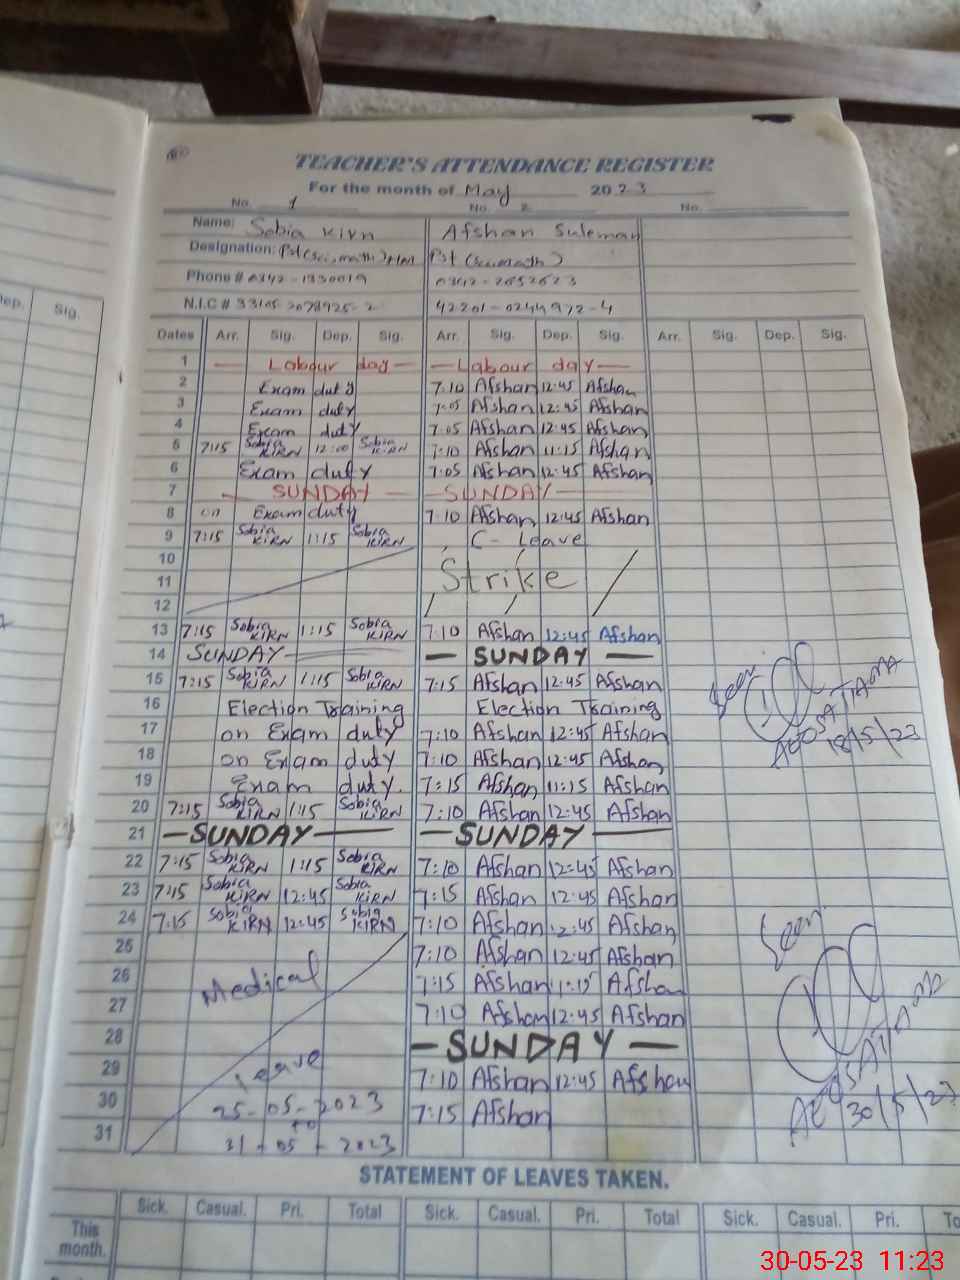 TEACHER'S ATTENDANCE REGISTER
For the month of May 2023
No. 1 No. 2 No.
Name: Sobia Kirn Afshan Suleman
Designation: Pst (Sci, math) Pst (Sci math)
Phone # 0342-1330019 0342-2652623
N.I.C # 33105 2078925-2 42201-0244972-4
Dep. Sig.
Dates Arr. Sig. Dep. Sig. Arr. Sig. Dep. Sig. Arr. Sig. Dep. Sig.
1 Labour day Labour day
2 Exam duty 7:10 Afshan 12:45 Afshan
3 Exam duty 7:05 Afshan 12:45 Afshan
4 Exam duty 7:05 Afshan 12:45 Afshan
5 7:15 Sobia KIRN 12:00 Sobia KIRN 7:10 Afshan 11:15 Afshan
6 Exam duty 7:05 Afshan 12:45 Afshan
7 SUNDAY SUNDAY
8 on Exam duty 7:10 Afshan 12:45 Afshan
9 7:15 Sobia KIRN 1:15 Sobia KIRN C- Leave
10
11 Strike
12
13 7:15 Sobia KIRN 1:15 Sobia KIRN 7:10 Afshan 12:45 Afshan
14 SUNDAY SUNDAY
15 7:15 Sobia KIRN 1:15 Sobia KIRN 7:15 Afshan 12:45 Afshan Seen
16 Election Training Election Training
17 on Exam duty 7:10 Afshan 12:45 Afshan 18/5/23
18 on Exam duty 7:10 Afshan 12:45 Afshan
19 Exam duty. 7:15 Afshan 11:15 Afshan
20 7:15 Sobia KIRN 1:15 Sobia KIRN 7:10 Afshan 12:45 Afshan
21 SUNDAY SUNDAY
22 7:15 Sobia KIRN 1:15 Sobia KIRN 7:10 Afshan 12:45 Afshan
23 7:15 Sobia KIRN 12:45 Sobia KIRN 7:15 Afshan 12:45 Afshan
24 7:15 Sobia KIRN 12:45 Sobia KIRN 7:10 Afshan 12:45 Afshan Seen
25 7:10 Afshan 12:45 Afshan
26 Medical 7:15 Afshan 11:15 Afshan
27 7:10 Afshan 12:45 Afshan
28 SUNDAY
29 Leave 7:10 Afshan 12:45 Afshan
30 25-05-2023 7:15 Afshan 30/5/23
to
31 31-05-2023
STATEMENT OF LEAVES TAKEN.
Sick. Casual. Pri. Total Sick. Casual. Pri. Total Sick. Casual. Pri. To
This month.
30-05-23 11:23